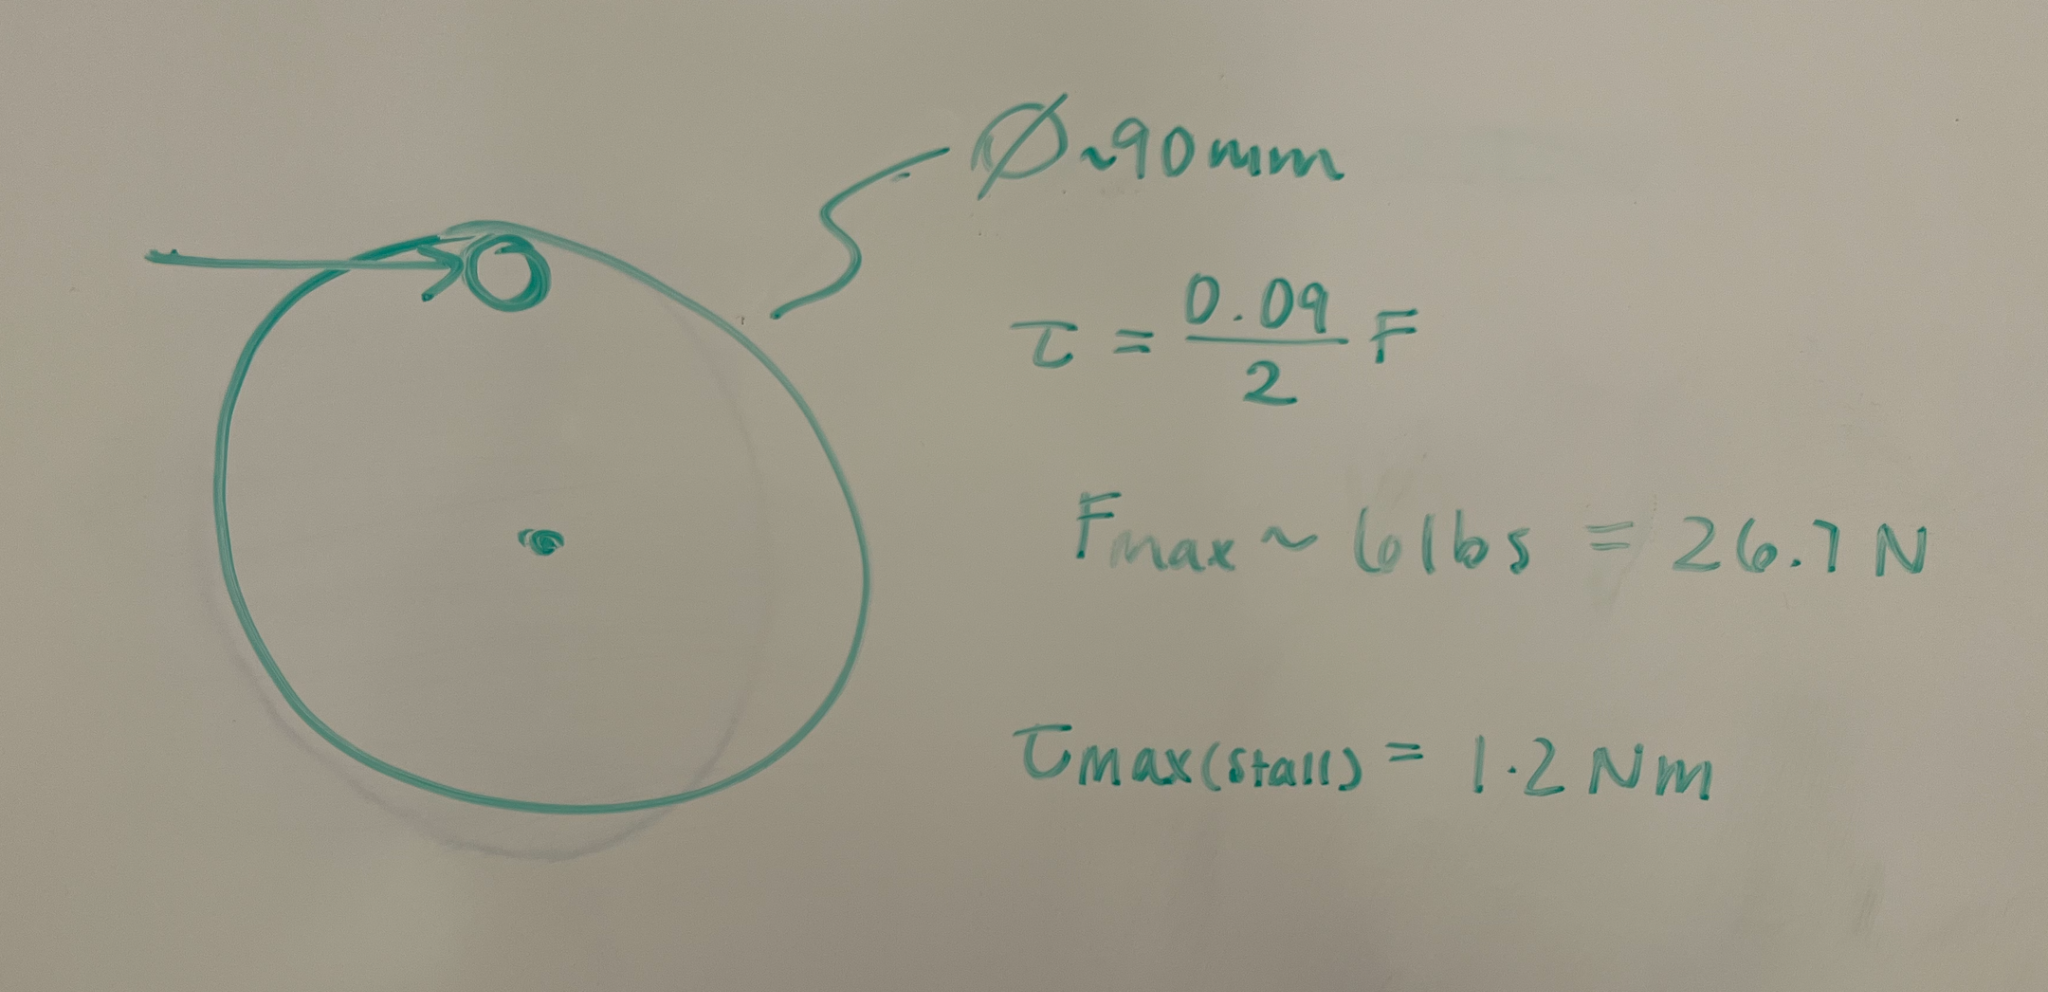 Ø ~90mm
τ = 0.09/2 F
Fmax ~ 6lbs = 26.7 N
τmax(stall) = 1.2 Nm